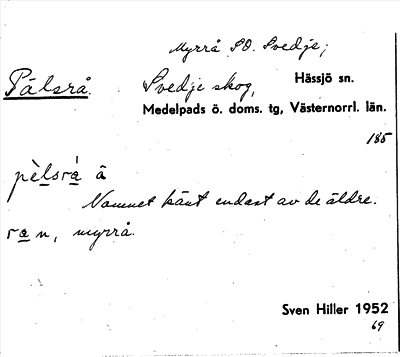 Myrrå SO. Svedje;
Pålsrå. Svedje skog, Hässjö sn.
Medelpads ö. doms. tg, Västernorrl. län.
185
pèlsrà â
Namnet känt endast av de äldre.
ran, myrrå.
Sven Hiller 1952
69